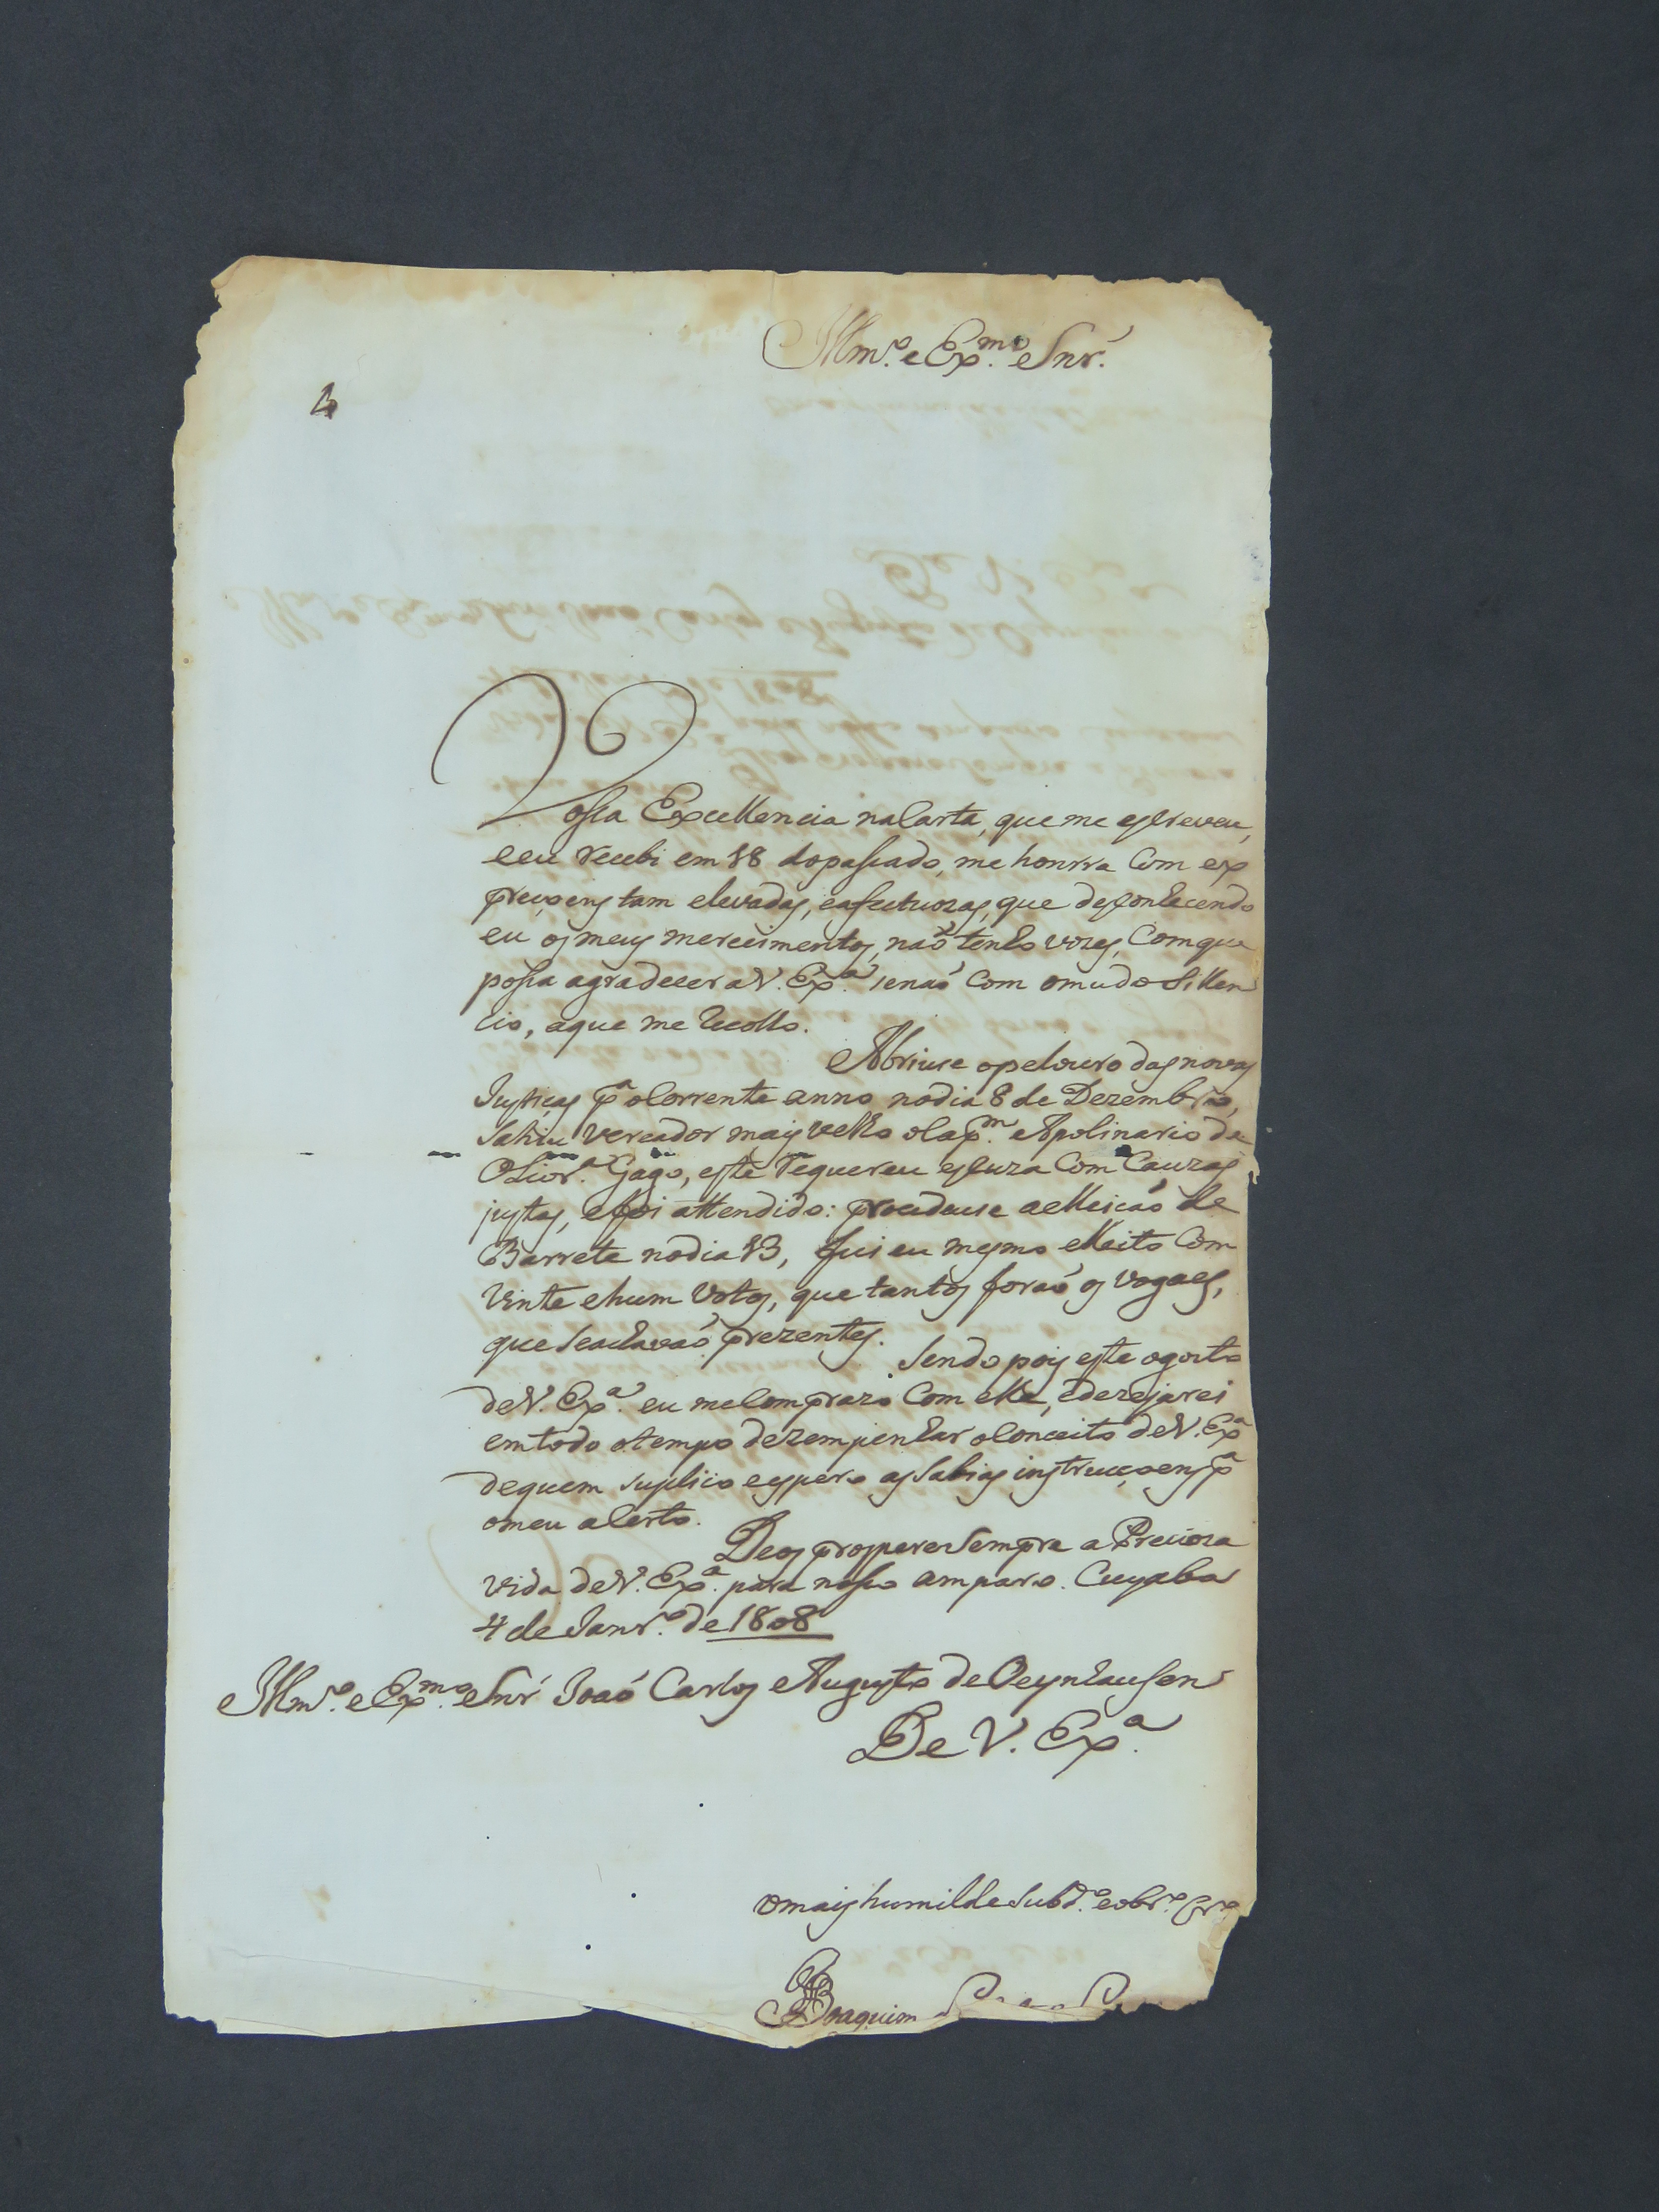 Illm.º e Ex.mo Snr.
Vossa Excellencia na Carta, que me escreveu,
e eu recebi em 18 do passado, me honrra Com ex
preçoens tam elevadas, e afectuozas, que desconhecendo
eu os meus merecimentos, naõ tenho vozes, Com que
possa agradecer a V. Ex.ª senaõ Com o mudo Sillen
cio, a que me recolho.
Abriuse o pelouro das novas
Justiças p.ª o Corrente anno no dia 8 de Dezembro,
Sahiu Vereador mais velho o Cap.m Apolinario de
Olivr.ª Gago, este requereu escuza Com Cauzas
justas, e foi attendido: procedeuse a elleicaõ de
Barrete no dia 13, fui eu mesmo elleito Com
Vinte e hum Votos, que tantos foraõ os Vogaes,
que Se achavaõ prezentes.
Sendo pois este o gosto
de V. Ex.ª eu me Comprazo Com elle, e dezejarei
em todo o tempo dezempenhar o Conceito de V. Ex.ª
de quem suplico e espero as Sabias instrucçoens p.ª
o meu acerto.
Deos prospere Sempre a Precioza
vida de V. Ex.ª para nosso amparo. Cuyaba
4 de Janr.º de 1808
Illm.º e Ex.mo Snr João Carlos Augusto de Oeynhausen
De V. Ex.ª
o mais humilde Subd.º e obr.º Cr.º
Joaquim